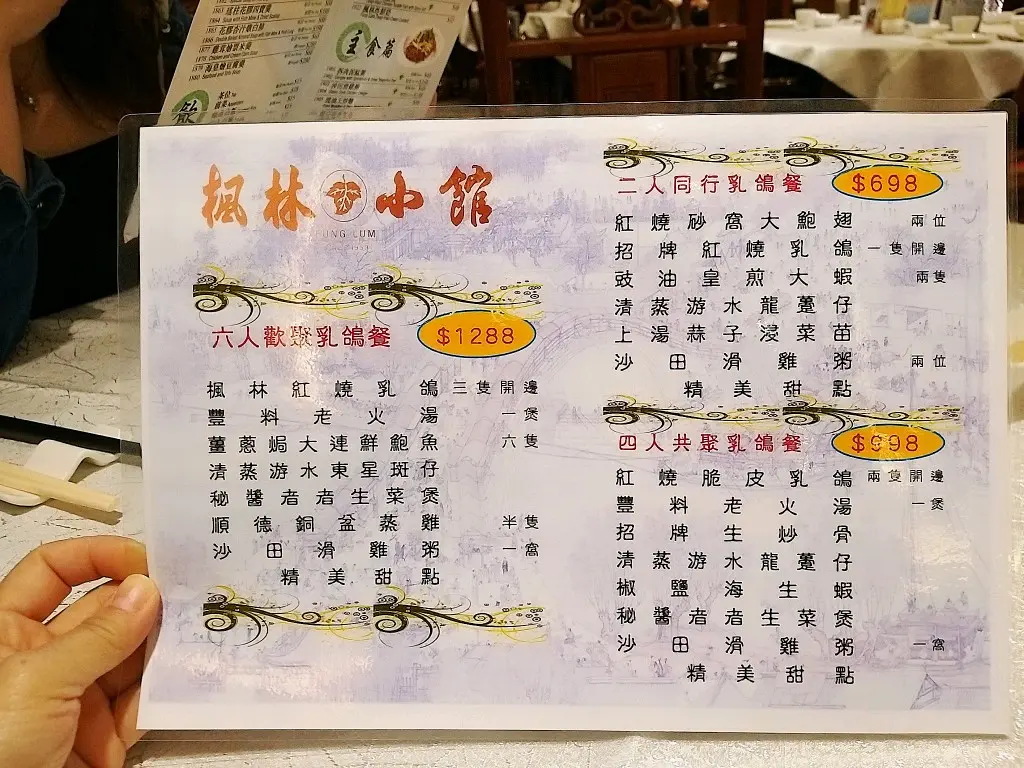 主食篇
楓林小館
FUNG LUM
六人歡聚乳鴿餐 $1288
楓林紅燒乳鴿 三隻開邊
豐料老火湯 一煲
薑蔥焗大連鮮鮑魚 六隻
清蒸游水東星斑仔
秘醬者者生菜煲
順德銅盆蒸雞 半隻
沙田滑雞粥 一窩
精美甜點
二人同行乳鴿餐 $698
紅燒砂窩大鮑翅 兩位
招牌紅燒乳鴿 一隻開邊
豉油皇煎大蝦 兩隻
清蒸游水龍躉仔
上湯蒜子浸菜苗
沙田滑雞粥 兩位
精美甜點
四人共聚乳鴿餐 $998
紅燒脆皮乳鴿 兩隻開邊
豐料老火湯 一煲
招牌生炒骨
清蒸游水龍躉仔
椒鹽海生蝦
秘醬者者生菜煲
沙田滑雞粥 一窩
精美甜點